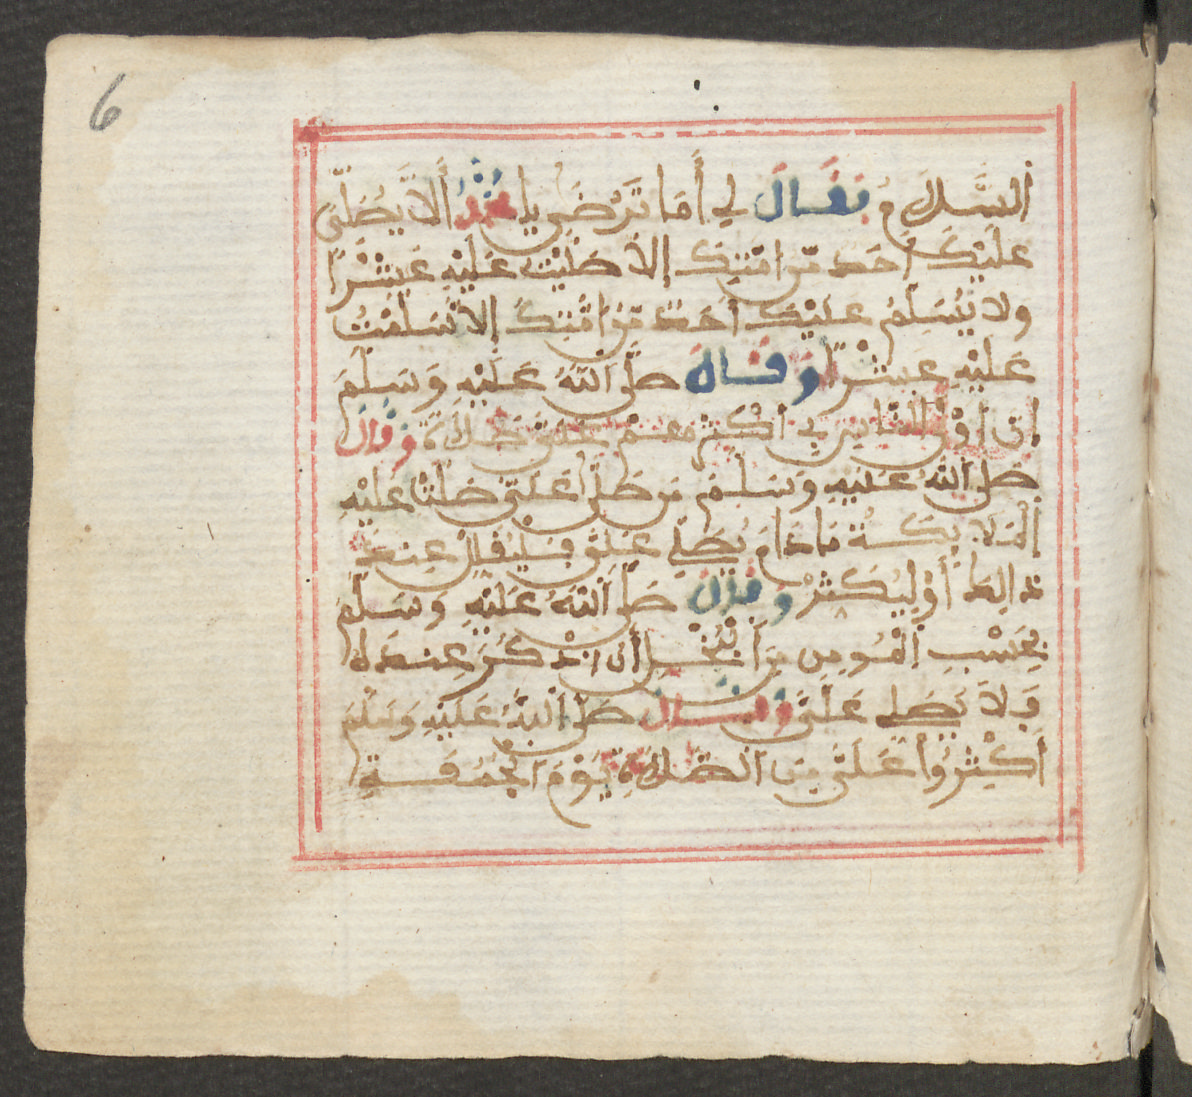 6
السَّلَامُ فَقَالَ لِي أَمَا تَرْضَى يَا مُحَمَّدُ أَلَّا يُصَلِّيَ
عَلَيْكَ أَحَدٌ مِّنْ أُمَّتِكَ إِلَّا صَلَّيْتُ عَلَيْهِ عَشْرًا
وَلَا يُسَلِّمُ عَلَيْكَ أَحَدٌ مِّنْ أُمَّتِكَ إِلَّا سَلَّمْتُ
عَلَيْهِ عَشْرًا وَقَالَ صَلَّى اللَّهُ عَلَيْهِ وَسَلَّمَ
إِنَّ أَوْلَى النَّاسِ بِي أَكْثَرُهُمْ عَلَيَّ صَلَاةً وَقَالَ
صَلَّى اللَّهُ عَلَيْهِ وَسَلَّمَ مَن صَلَّى عَلَيَّ صَلَّتْ عَلَيْهِ
الْمَلَائِكَةُ مَا دَامَ يُصَلِّي عَلَيَّ فَلْيُقْلِلْ عِندَ
ذَالِكَ أَوْ لِيُكْثِرْ وَقَالَ صَلَّى اللَّهُ عَلَيْهِ وَسَلَّمَ
بِحَسْبِ الْمُومِنِ مِنَ الْبُخْلِ أَنْ أُذْكَرَ عِندَهُ
وَلَا يُصَلِّي عَلَيَّ وَقَالَ صَلَّى اللَّهُ عَلَيْهِ وَسَلَّمَ
أَكْثِرُوا عَلَيَّ مِنَ الصَّلَاةِ يَوْمَ الْجُمُعَةِ